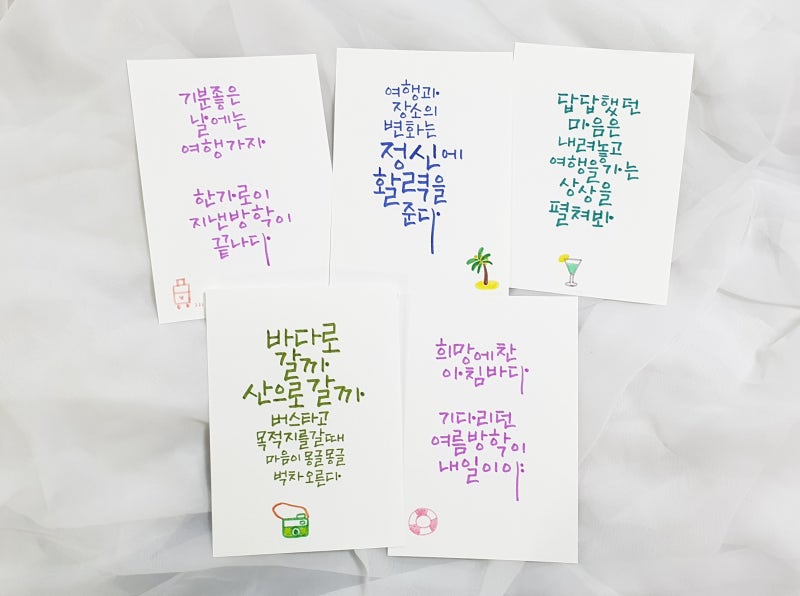 기분좋은
날에는
여행가자
한가로이
지낸방학이
끝나다
여행과
장소의
변화는
정신에
활력을
준다
답답했던
마음은
내려놓고
여행을가는
상상을
펼쳐봐
바다로
갈까
산으로갈까
버스타고
목적지를갈때
마음이몽글몽글
벅차오른다
희망에찬
아침바다
기다리던
여름방학이
내일이야